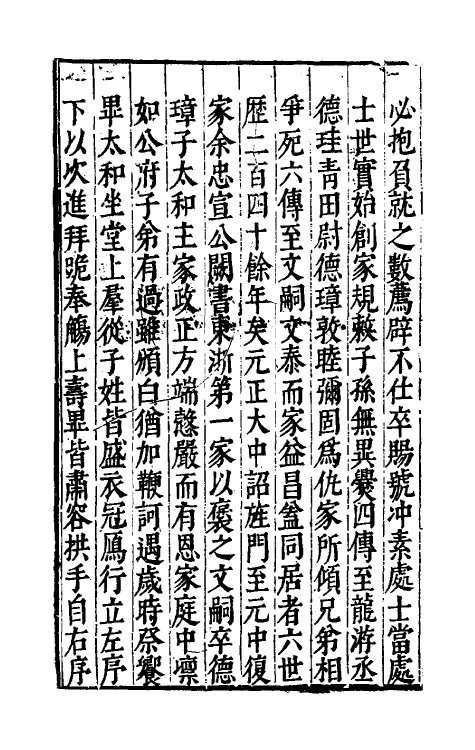 必抱負就之數薦辟不仕卒賜號冲素處士當處
士世實始創家規敕子孫無異爨四傳至龍游丞
德珪靑田尉德璋敦睦彌固爲仇家所傾兄弟相
爭死六傳至文嗣文泰而家益昌盆同居者六世
歷二百四十餘年矣元正大中詔旌門至元中復
家余忠宣公闕書東浙第一家以褒之文嗣卒德
璋子太和主家政正方端愨嚴而有恩家庭中凛
如公府子弟有過雖頒白猶加鞭訶遇歲時奈饗
畢太和坐堂上羣從子姓皆盛衣冠鴈行立左序
下以次進拜跪奉觴上壽畢皆肅容拱手自右序